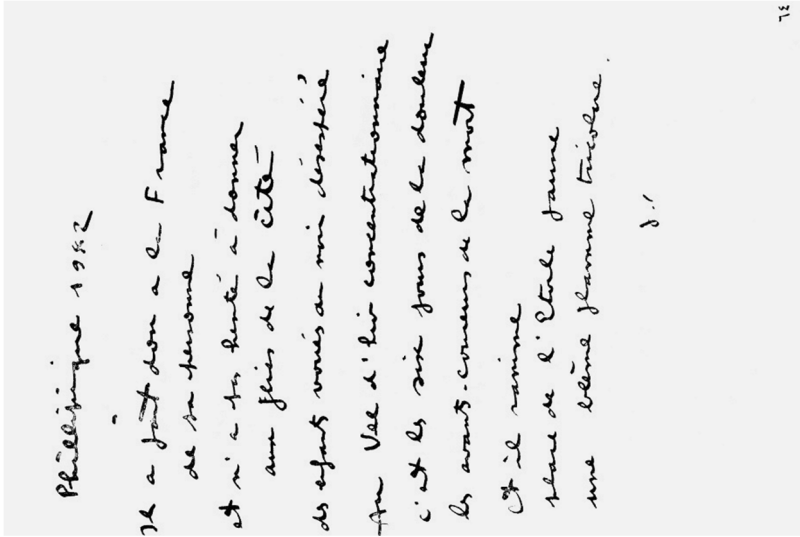 Phillipique
Il a fait don a la France
de sa personne
et n'a pas hésité à donner
aux flics de la cité
des enfants voués au noir désespéré
Au Vel d'hiv concentrationnaire
c'est les six jours de la douleur
les avants-coureurs de la mort
Et il ranime
place de l'Etoile jaune
une blême flamme tricolore.